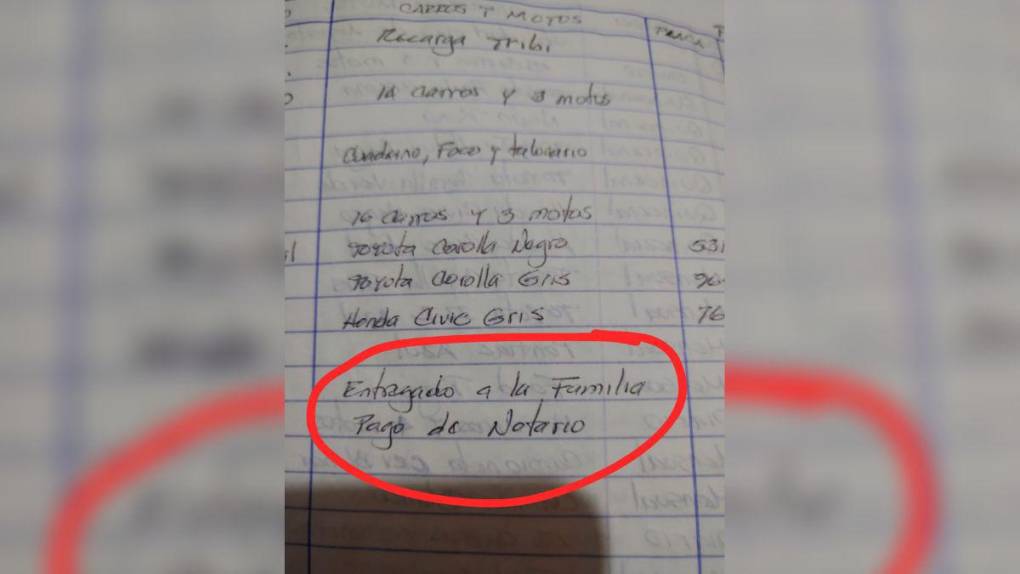 CARROS Y MOTOS
PLACA
Recarga
14 carros y 3 motos
Cuaderno, Foco y talonario
16 carros y 3 motos
Toyota Corolla Negro 531
Toyota Corolla Gris 96
Honda Civic Gris 76
Entregado a la Familia
Pago de Notario